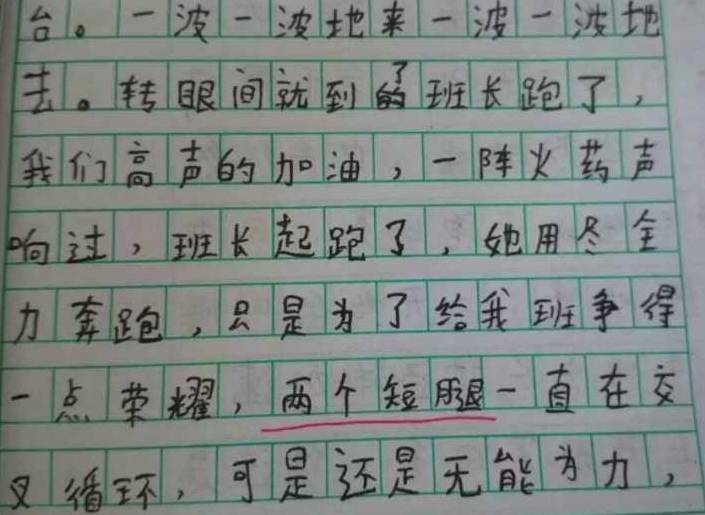 台。一波一波地来一波一波地
去。转眼间就到了的班长跑了，
我们高声的加油，一阵火药声
响过，班长起跑了，她用尽全
力奔跑，只是为了给我班争得
一点荣耀，两个短腿一直在交
叉循环，可是还是无能为力，